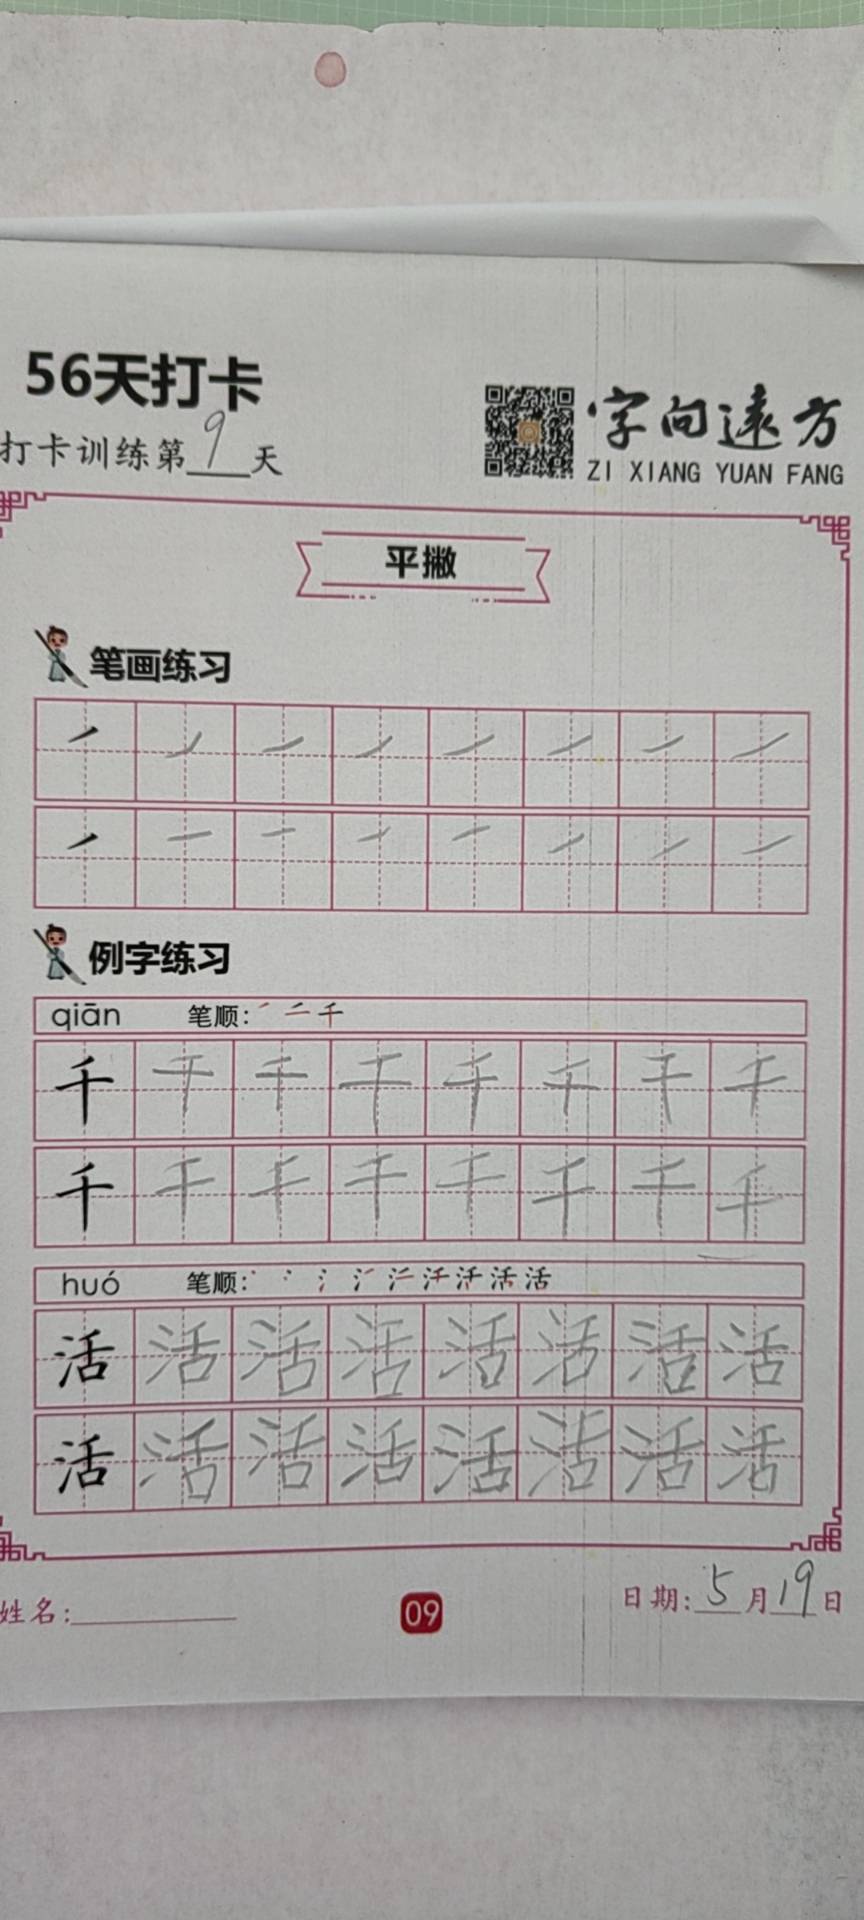 56天打卡
打卡训练第9天
字向远方
ZI XIANG YUAN FANG
平撇
笔画练习
㇒ ㇒ ㇒ ㇒ ㇒ ㇒ ㇒ ㇒
㇒ ㇒ ㇒ ㇒ ㇒ ㇒ ㇒ ㇒
例字练习
qiān 笔顺: ㇒ 二 千
千 千 千 千 千 千 千 千
千 千 千 千 千 千 千 千
huó 笔顺: 活
活 活 活 活 活 活 活 活
活 活 活 活 活 活 活 活
姓名:
09
日期: 5月19日